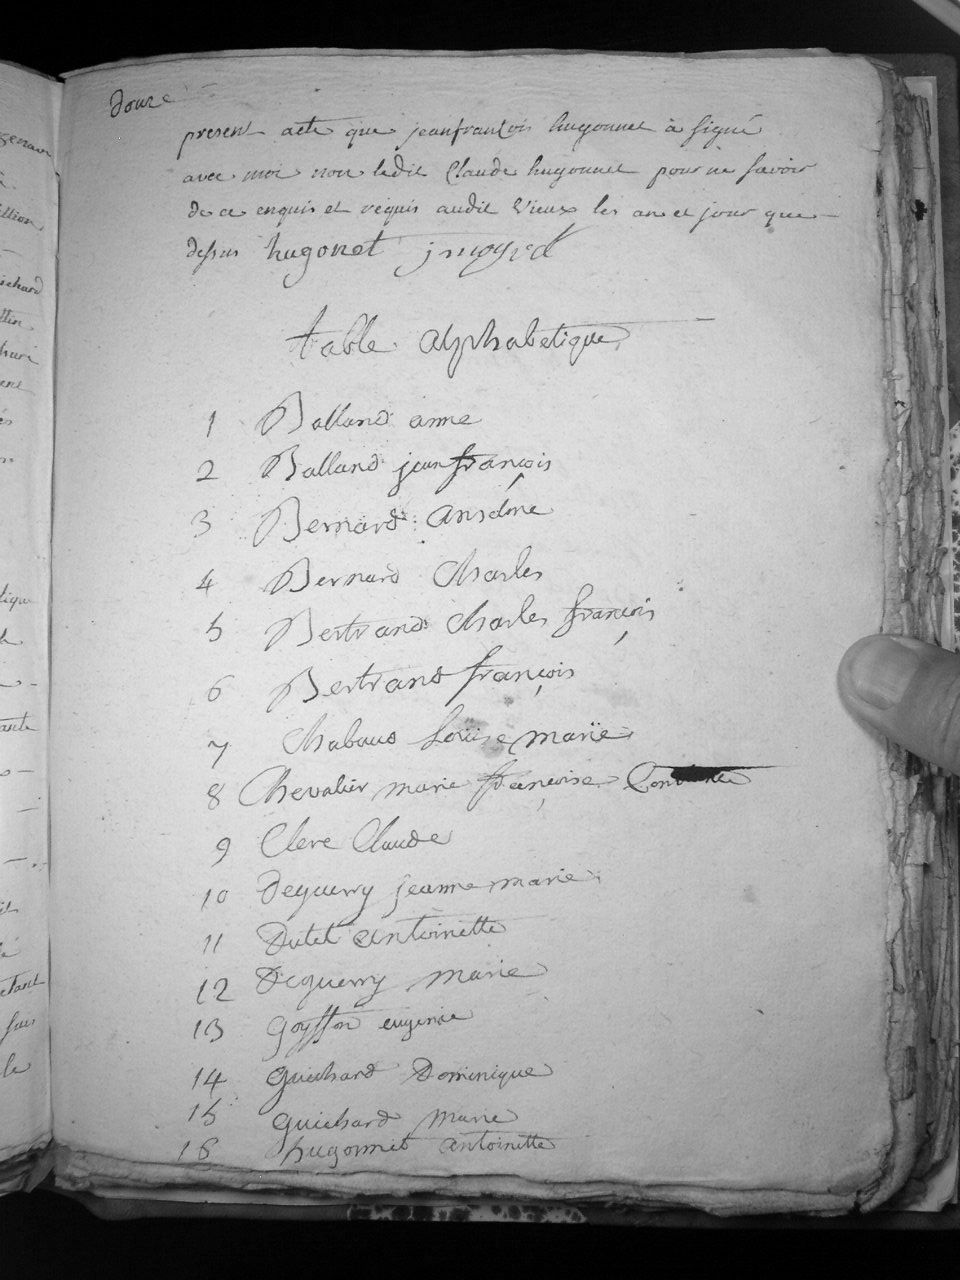 douze
present acte que jeanfrançois hugonnet à signé
avec moi non ledit Claude hugonnet pour ne savoir
de ce enquis et requis audit Vieux les an et jour que
dessus hugonet
table alphabetique
1 Balland anne
2 Balland jeanfrançois
3 Bernard anselme
4 Bernard Charles
5 Bertrand Charles françois
6 Bertrand françois
7 Chabaud Louise marie
8 Chevalier marie françoise Constance
9 Clerc Claude
10 Deguerry jeanne marie
11 Dutel antoinette
12 Deguerry marie
13 Goyffon eugenie
14 guichard Dominique
15 guichard marie
16 hugonnet antoinette